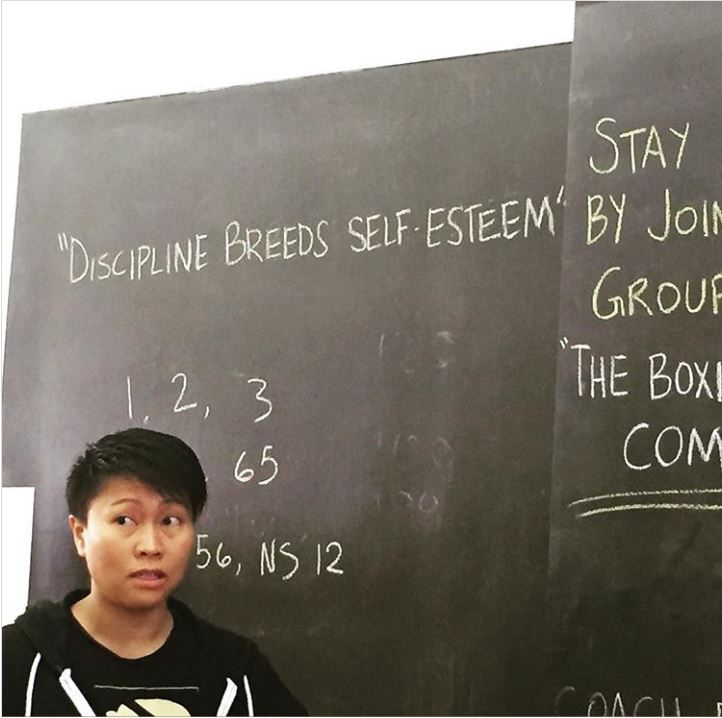 "DISCIPLINE BREEDS SELF-ESTEEM"
1, 2, 3
65
56, NS 12
STAY
BY JOIN
GROUP
"THE BOXI
COM
COACH